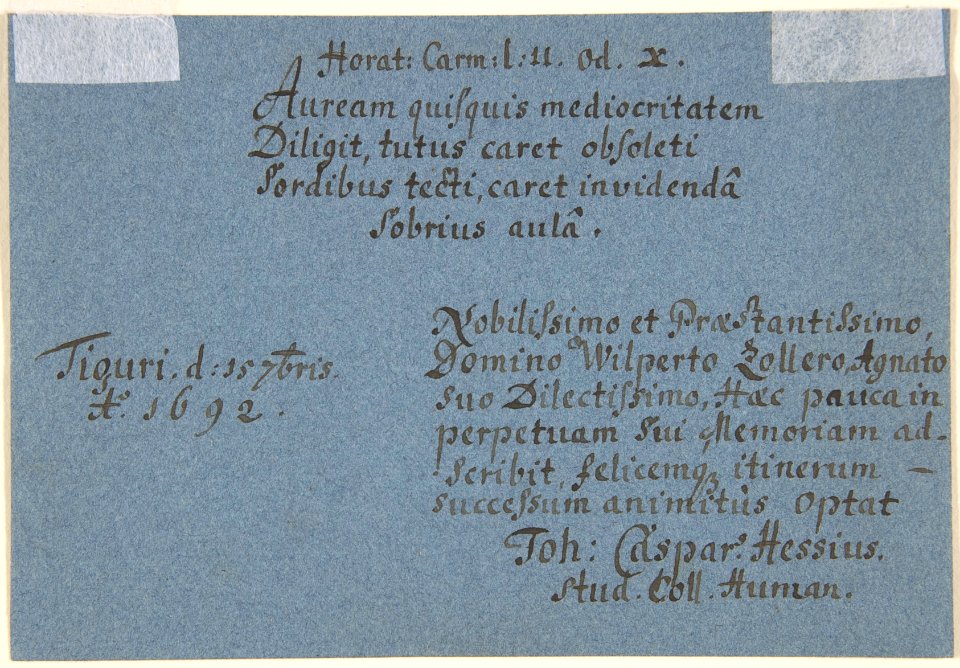 Horat: Carm: l: 11. Od. X.
Auream quiſquis mediocritatem
Diligit, tutus caret obſoleti
Sordibus tecti, caret invidendâ
Sobrius aulâ.
Nobiliſsimo et Præstantiſsimo,
Domino Wilperto Zollero, Agnato
suo Dilectiſsimo, Hæc pauca in
perpetuam Sui Memoriam ad-
scribit, felicemq₃ itinerum –
succeſsum animitùs optat
Joh: Caspar⁹ Hessius.
stud. Coll. Human.
Tiguri. d: 15 7bris.
Aº. 1692.